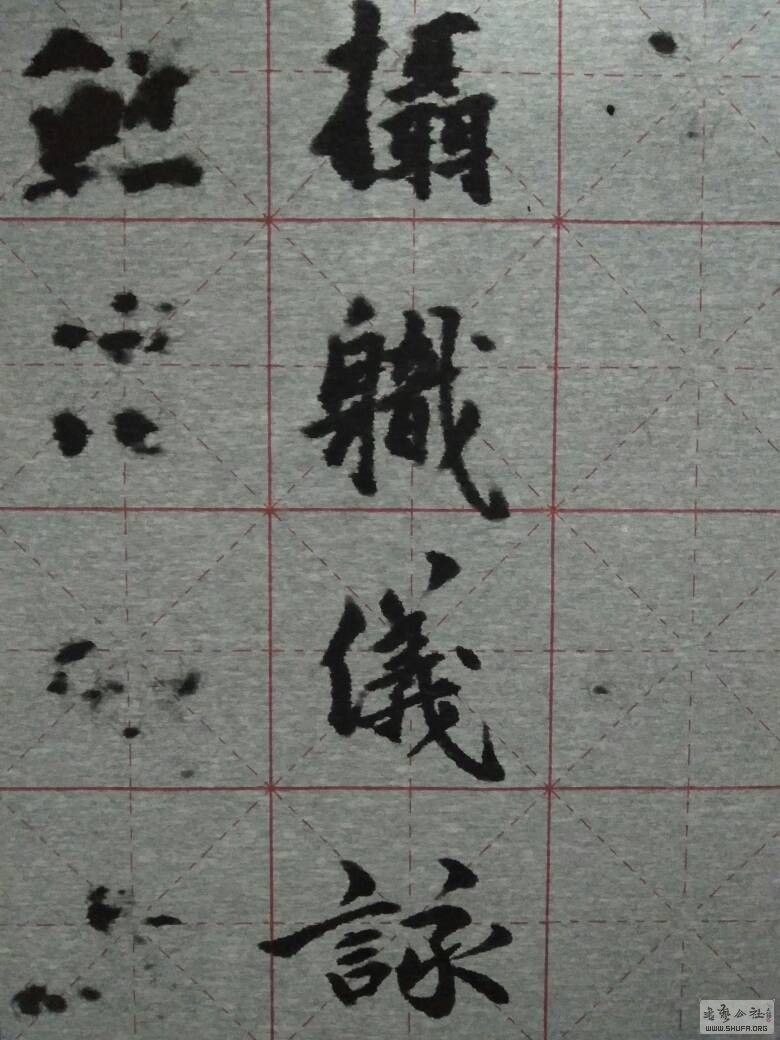 攝
軄
儀
詠
書藝公社
WWW.SHUFA.ORG